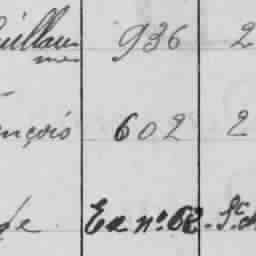 uillau 936 2
mes
nçois 602 2
de Ex nº 62. St